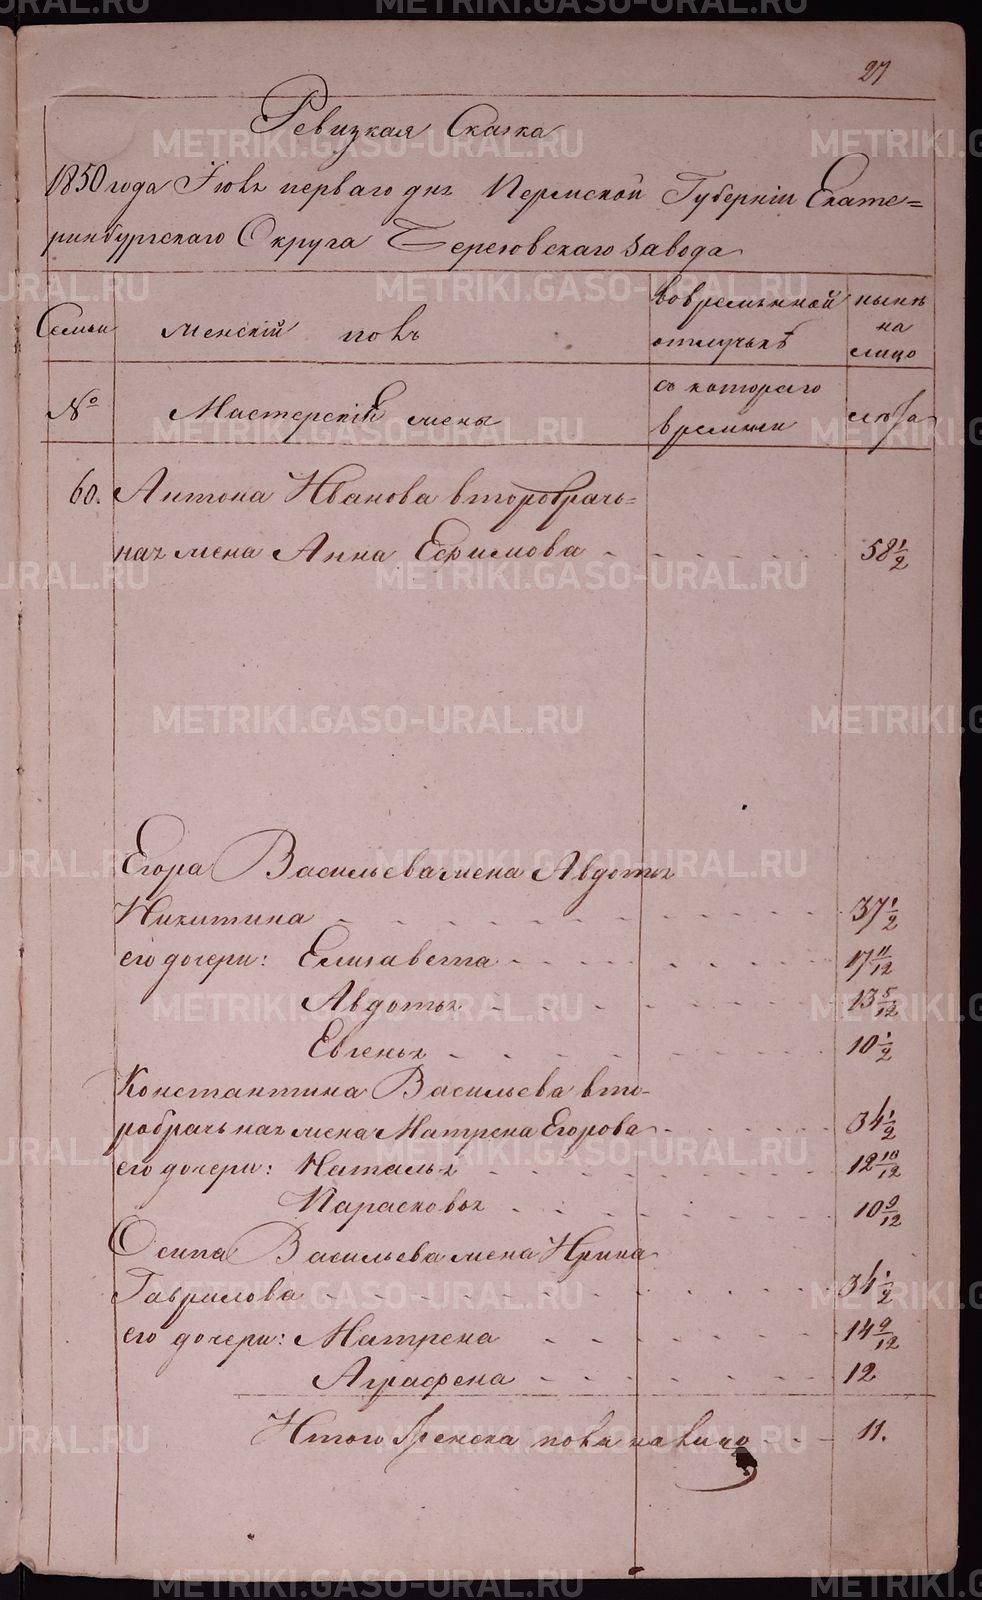 27
Ревизкая Сказка
1850 года Іюня перваго дня Пермской Губерніи Екате=
ринбургскаго Округа Березовскаго завода
Семьи женскій полъ во временной нынѣ
отлучкѣ на
лицо
№ Мастерскій жены съ котораго лѣта
времени
60. Антона Иванова второбрачь=
ная жена Анна Ефимова 58 1/2
Егора Васильева жена Авдотья
Никитина 37 1/2
его дочери: Елизавета 17 11/12
Авдотья 13 5/12
Евгенья 10 1/2
Константина Васильева вто-
робрачьная жена Матрена Егорова 34 1/2
его дочери: Наталья 12 10/12
Парасковья 10 9/12
Осипа Васильева жена Ирина
Гаврилова 34 1/2
его дочери: Матрена 14 9/12
Аграфена 12
Итого женска пола на лицо 11.
METRIKI.GASO-URAL.RU